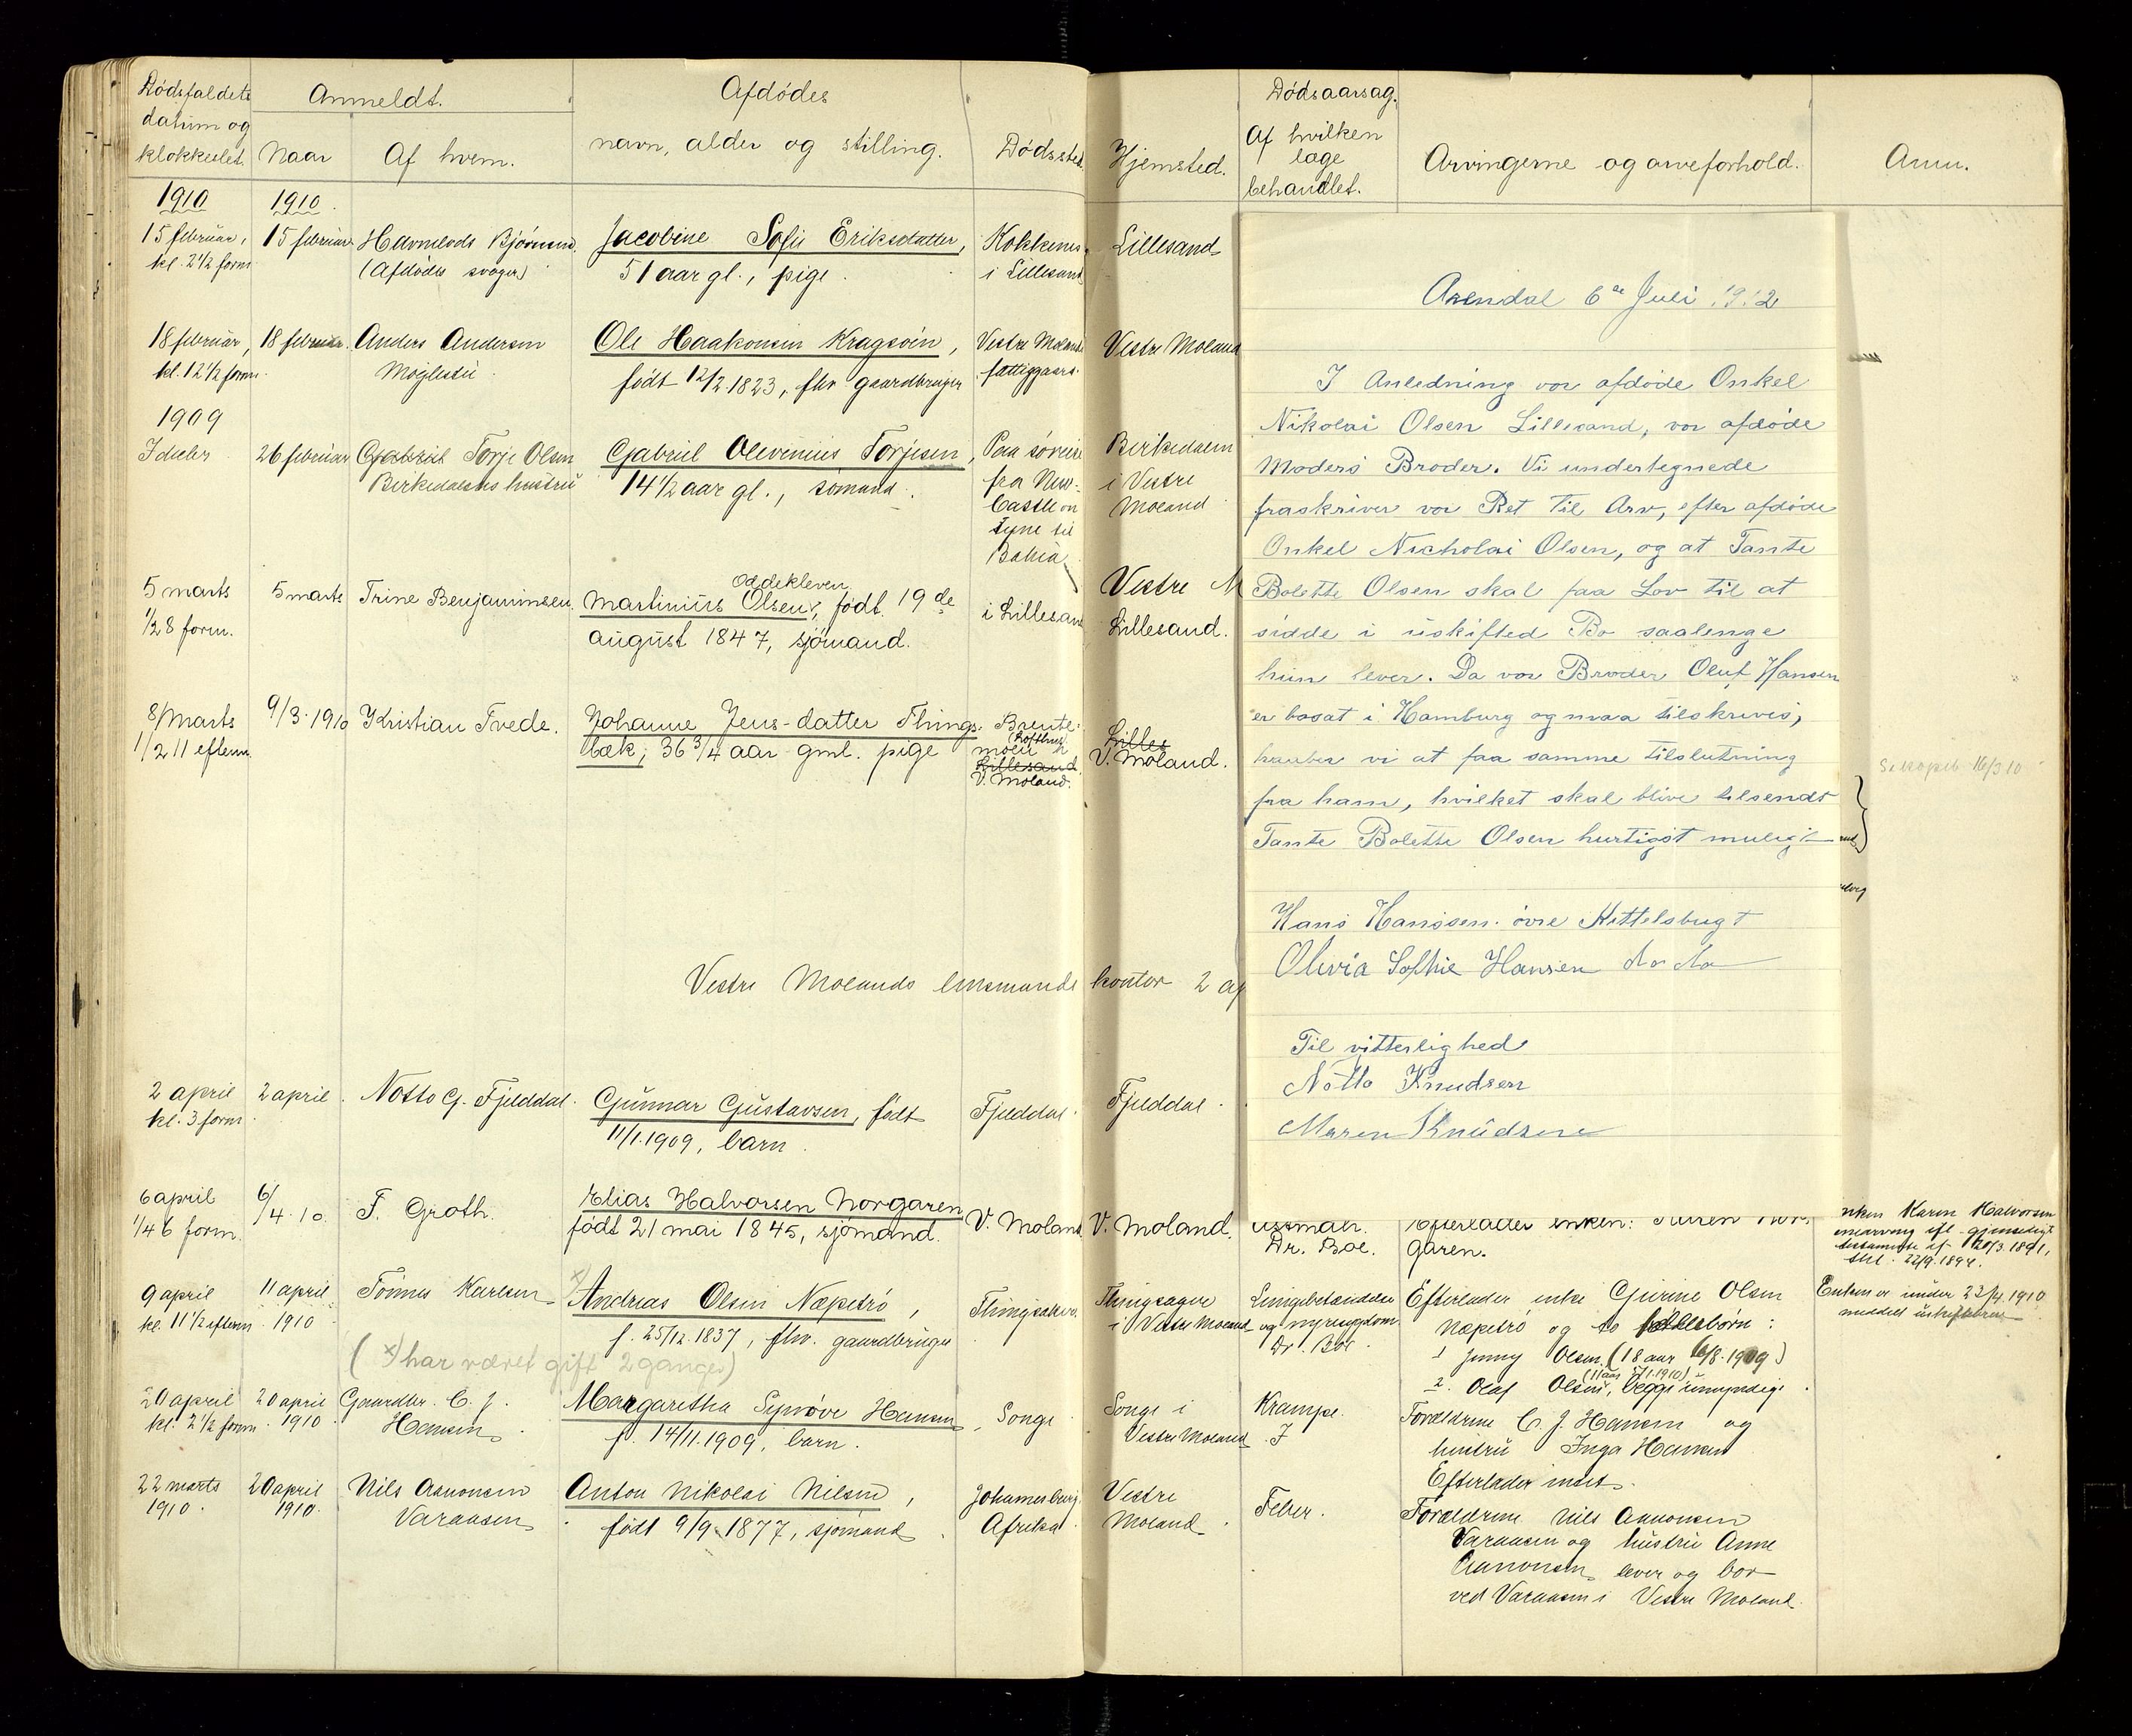 Dødsfaldets
datum og
klokkeslet.
Anmeldt.
Naar
Af hvem.
Afdødes
navn, alder og stilling.
Dødssted.
Hjemsted.
Dødsaarsag.
Af hvilken
læge
behandlet.
Arvingerne og arveforhold.
Anm.
1910
1910.
15 februar,
kl. 2 1/2 form
15 februar
Bjørnsen.
(Afdødes svoger)
Jacobine Sofie Eriksdatter,
51 aar gl., pige.
i Lillesand
Lillesand
18 februar,
kl. 12 1/2 form.
18 februar.
Anders Andersen
Møglestu
Ole Haakonsen Kragsøin,
født 12/2 1823, fhv. gaardbruger
Vestre Molands
fattiggaard.
Vestre Moland
1909
26 februar
Torje Olsen
Birkedalens hustru
Gabriel Olevinius Torjesen,
14 1/2 aar gl., sømand.
Paa søreise
fra New-
Castle on
tyne til
Bahia.
Birkedalen
i Vestre
Moland
5 marts
1/2 8 form.
5 marts
Trine Benjaminsen.
Oddekleven
Martinius Olsen, født 19de
august 1847, sjømand.
i Lillesand
Vestre M
Lillesand.
8/marts
1/2 11 efterm.
9/3. 1910
Kristian Tvede.
Johanne Jens-datter Things-
bæk, 36 3/4 aar gml. pige
Brente-
moen
Lillesand
V. Moland.
Lilles
V. Moland.
Vestre Molands lensmands kontor 2 ap
2 april
kl. 3 form
2 april.
Notto G. Fjelddal.
Gunnar Gustavsen, født
11/1.1909, barn.
Fjelddal.
Fjelddal.
6 april
1/4 6 form.
6/4.10.
F. Groth.
Elias Halvorsen Norgaren
født 21 mai 1845, sjømand.
V. Moland.
V. Moland.
Dr. Boe.
Efterlader enken: Karen Nor-
garen.
nken Karen Halvorsen
testamente af 20/3.1891,
9 april
kl. 11 1/2 efterm.
11 april
1910
Tønnes Karlsen
x) Andreas Olsen Næpetrø,
f. 25/12.1837, fhv. gaardbruger
(x) har været gift 2 ganger)
Thingsaker
Thingsager
i Vestre Moland
Lungebetændelse
og nyresygdom
Dr. Boe
Efterlader enke Gurine Olsen
Næpetrø og to fællesbørn:
1 Jenny Olsen (18 aar 6/8.1909)
(11 aar 5/1.1910)
2. Olaf Olsen, begge umyndige.
Enken er under 23/4 1910
meddelt uskiftebrev
20 april
kl. 2 1/2 form.
20 april
1910
Gaardbr. C. J.
Hansen
Margaretha Synøve Hansen
f. 14/11.1909, barn.
Songe
Songe i
Vestre Moland.
Krampe.
Forældrene C. J. Hansen og
hustru Inga Hansen
Efterlader intet.
22 marts
1910.
20 april
1910.
Nils Aanonsen
Varaasen
Anton Nikolai Nilsen,
født 9/9.1877, sjømand.
Johannesburg,
Afrika
Vestre
Moland.
Feber.
Forældrene Nils Aanonsen
Varaasen og hustru Anne
Aanonsen lever og bor
ved Varaasen i Vestre Moland.
Arendal 6te Juli 1912
I Anledning vor afdøde Onkel
Nikolai Olsen Lillesand, vor afdøde
Moders Broder. Vi undertegnede
fraskriver vor Ret til Arv, efter afdøde
Onkel Nicholai Olsen, og at Tante
Bolette Olsen skal faa Lov til at
sidde i uskifted Bo saalenge
hun lever. Da vor Broder Oluf Hansen
er bosat i Hamburg og maa tilskrives,
haaber vi at faa samme tilslutning
fra ham, hvilket skal blive tilsendt
Tante Bolette Olsen hurtigst muligt
Hans Hanssen. øvre Kittelsbugt
Olivia Sofhie Hansen do do
Til vitterlighed
Notto Knudsen
Maren Knudsen